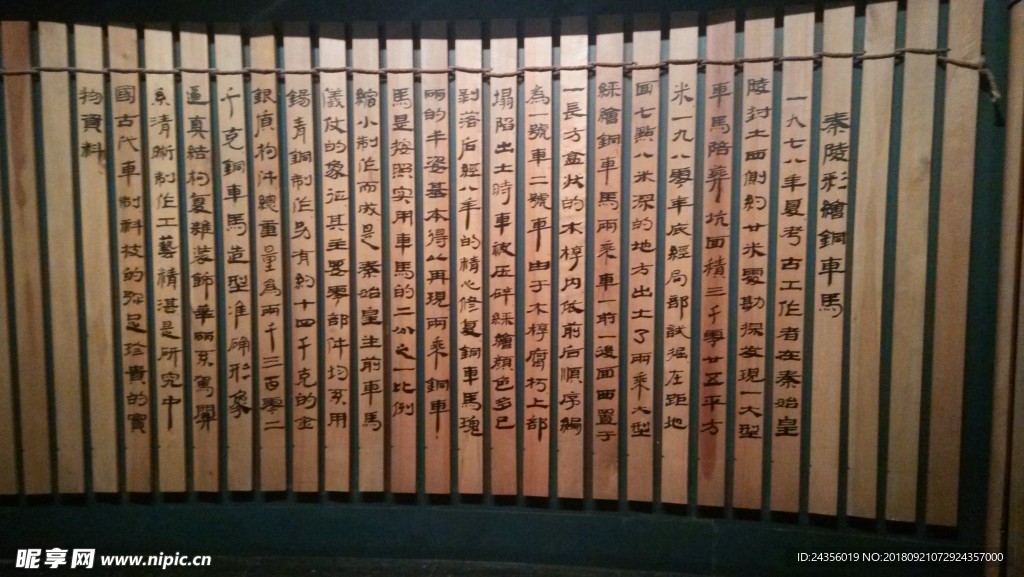 秦陵彩繪銅車馬
一九七八年夏考古工作者在秦始皇
陵封土西側約廿米零勘探发現一大型
車馬陪葬坑面積三千零廿五平方
米一九八零年底經局部試掘在距地
面七點八米深的地方出土了兩乘大型
綵繪銅車馬兩乘車一前一後面西置于
一長方盒狀的木椁内依前后順序編
為一號車二號車由于木椁腐朽上部
塌陷出土時車被压碎綵繪顏色多已
剥落后經八年的精心修复銅車馬瑰
丽的丰姿基本得以再現兩乘銅車
馬是按照实用車馬的二分之一比例
縮小制作而成是秦始皇生前車馬
儀仗的象征其主要零部件均系用
錫青銅制作另有約十四千克的金
銀質构件總重量為兩千三百零二
千克銅車馬造型准确形象
逼真結构复雜装飾華丽系駕關
系清晰制作工藝精湛是研究中
國古代車制科技的弥足珍貴的實
物資料
昵享网 www.nipic.cn
ID:24356019 NO:20180921072924357000